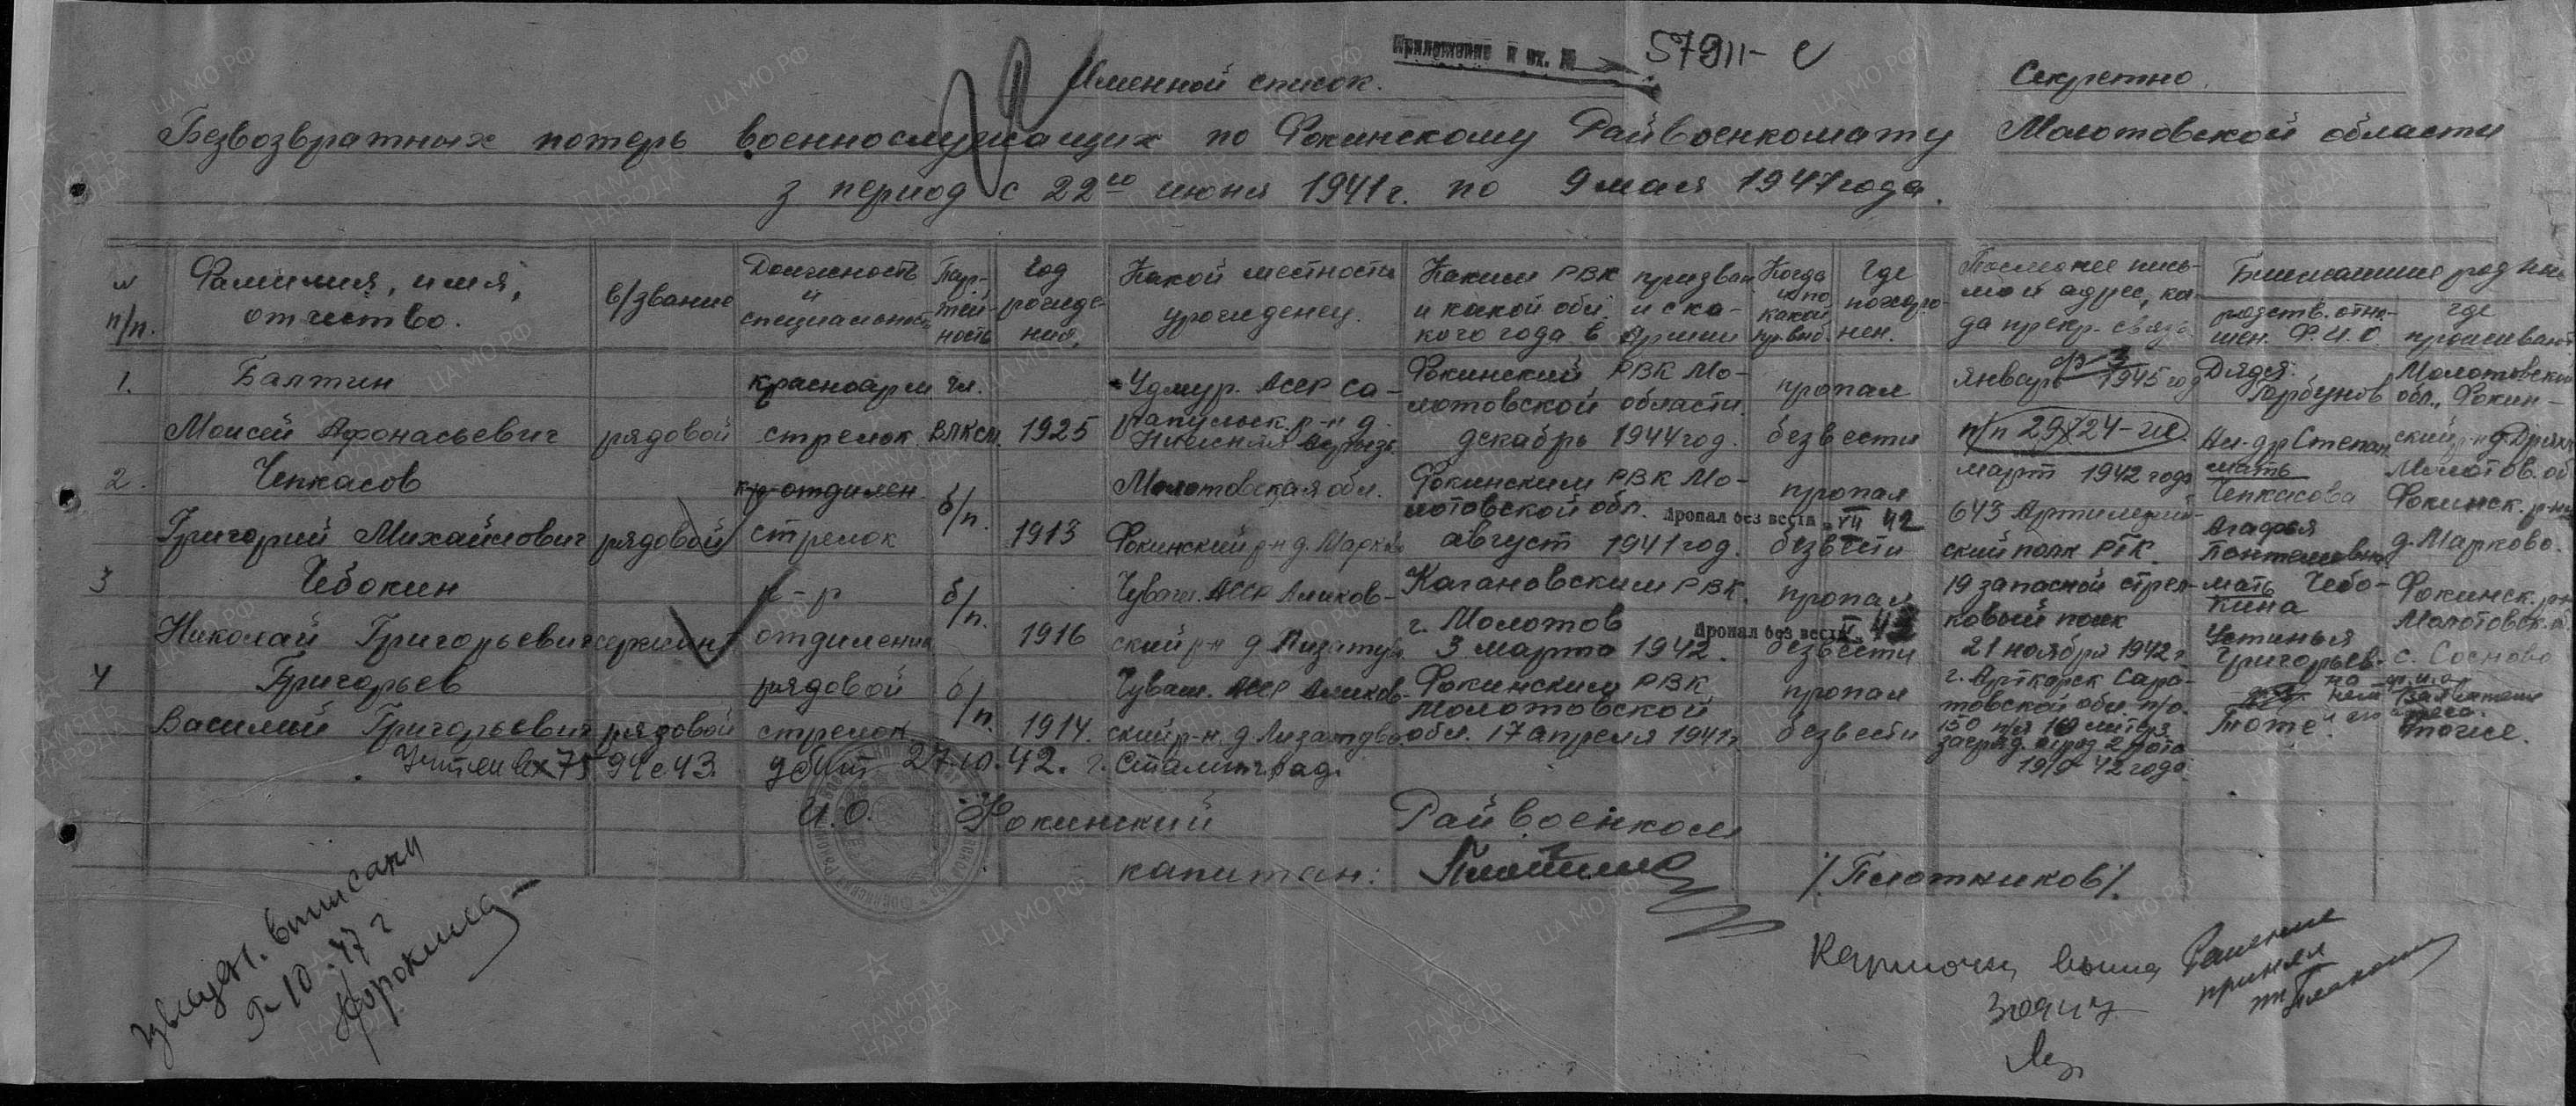 Приложение к вх. № 57911-с
Именной список.
Секретно
Безвозвратных потерь военнослужащих по Фокинскому Райвоенкомату Молотовской области
з период с 22го июня 1941г. по 9 мая 1947 года.
№ п/п.
Фамилия, имя, отчество.
в/звание
Должность и специальность
Партийность
Год рождения,
Какой местности уроженец.
Каким РВК призван и какой обл. и с какого года в Армии
Когда и по какой пр. выб.
Где похоронен.
Последнее письмо и адрес, когда прекр. связь
Ближайшие род
родств. отношен. Ф.И.О.
где проживают
1.
Балтин
Моисей Афонасьевич
рядовой
красноарм
стрелок
чл.
ВЛКСМ.
1925
Удмур. АССР Са-
рапульск. р-н д.
Нижняя
Фокинский РВК Мо-
лотовской области.
декабрь 1944 год.
пропал
безвести
январь 1945 год
п/п 29824-
Дядя:
Горбунов
Ал-др Степан
Молотовский
обл., Фокин-
ский р-н д.
2.
Чепкасов
Григорий Михайлович
рядовой
к-р отделен.
стрелок
б/п.
1913
Молотовская обл.
Фокинский р-н д. Марково
Фокинским РВК Мо-
лотовской обл.
август 1941 год.
Пропал без вести VII 42
пропал
безвести
март 1942 года
643 Артиллерий-
ский полк РГК.
мать
Чепкасова
Агафья
Пантелеевна
Молотов. об
Фокинск. р-н
д. Марково.
3
Чебокин
Николай Григорьевич
сержант
к-р
отделения
б/п.
1916
Чуваш. АССР Аликов-
ский р-н д.
Кагановским РВК.
г. Молотов
3 марта 1942.
Пропал без вести
пропал
безвести
19 запасной стрел-
ковый полк
21 ноября 1942 г
мать Чебо-
кина
Устинья
Григорьев-
на
Фокинск. р-н
Молотовск.
с. Сосново
4
Григорьев
Василий Григорьевич
рядовой
рядовой
стрелок
б/п.
1914.
Чуваш. АССР Аликов-
ский р-н. д.
Фокинским РВК
Молотовской
обл. 17 апреля 1941г.
пропал
безвести
г. Аткарск Сара-
товской обл. п/о.
150 п/я 10
2 рота
19/ 42 года.
тоже.
Учтен вх 75 94с 43. убит 27.10.42. г. Сталинград.
И.О. Фокинский Райвоенком
капитан: /Плотников/.
Извещен. выписаны
10.47 г
Карточки